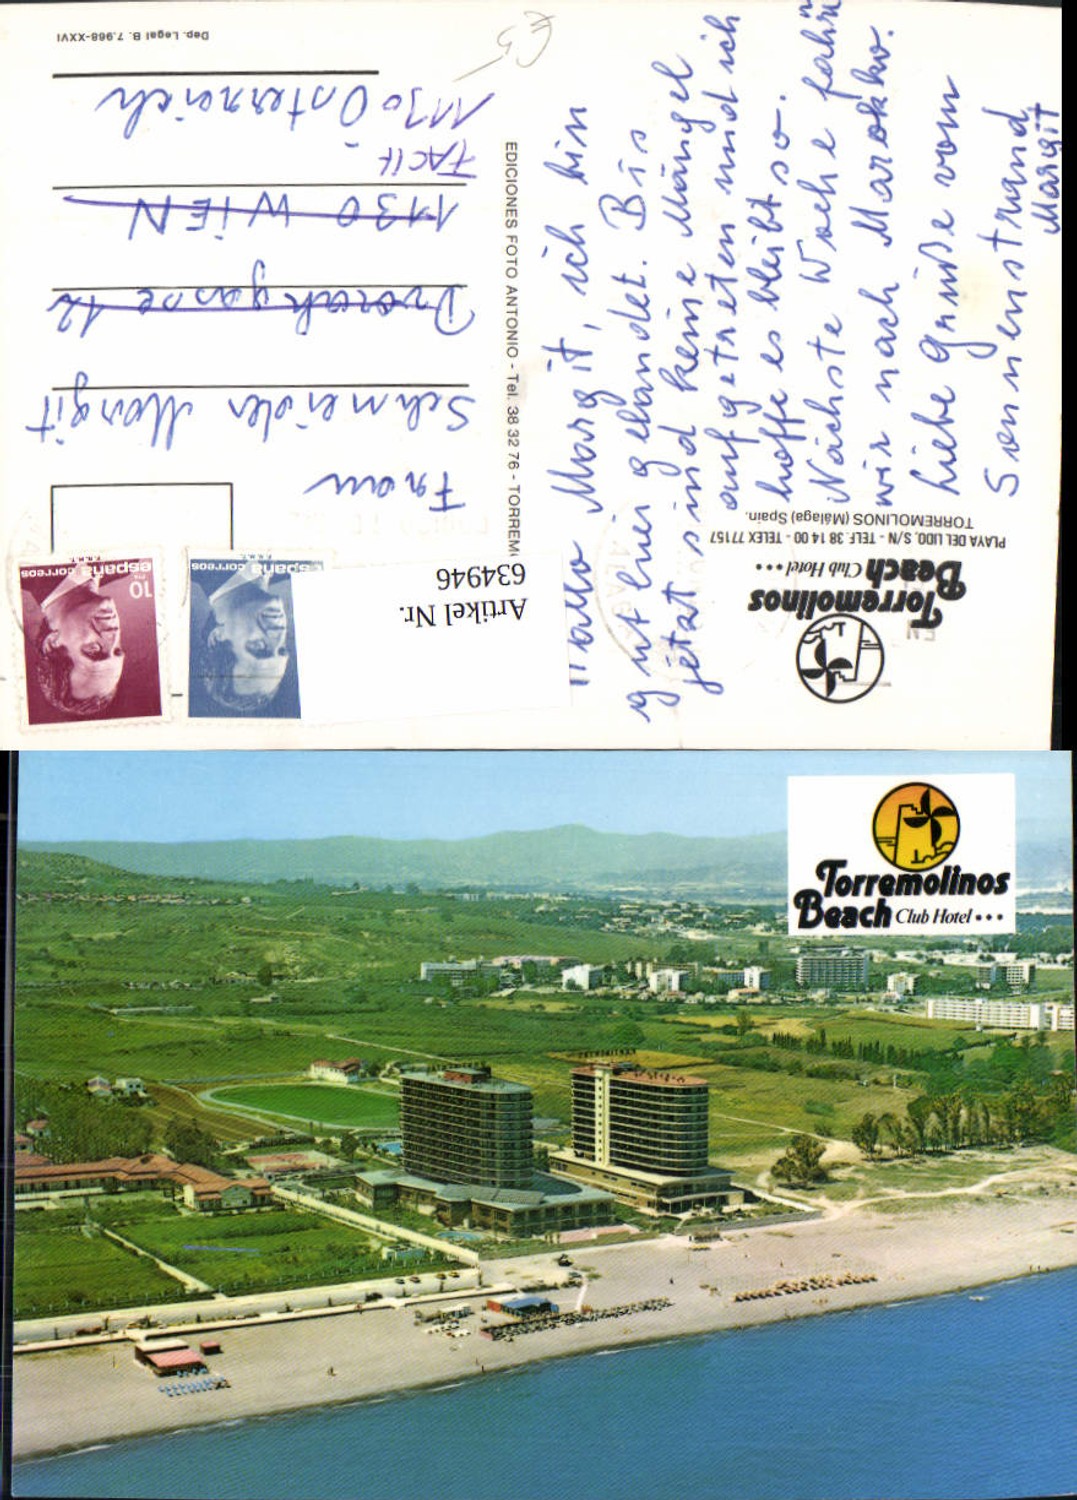 Hallo Margit, ich bin
gut hier gelandet. Bis
jetzt sind keine Mängel
aufgetreten und ich
hoffe es bleibt so.
Nächste Woche fahren
wir nach Marokko.
Liebe Grüße vom
Sonnenstrand
Margit
Torremolinos
Beach Club Hotel ••••
PLAYA DEL LIDO, S/N - TELF. 38 14 00 - TELEX 77157
TORREMOLINOS (Málaga) Spain.
EDICIONES FOTO ANTONIO - Tel. 38 32 76 - TORREM
Artikel Nr.
634946
10 PTA
españa correos
españa correos
Frau
Schneider Margit
Dvorakgasse 12
1130 WIEN
1130 Österreich
Dep. Legal B. 7.968-XXVI
€5
Torremolinos
Beach Club Hotel •••